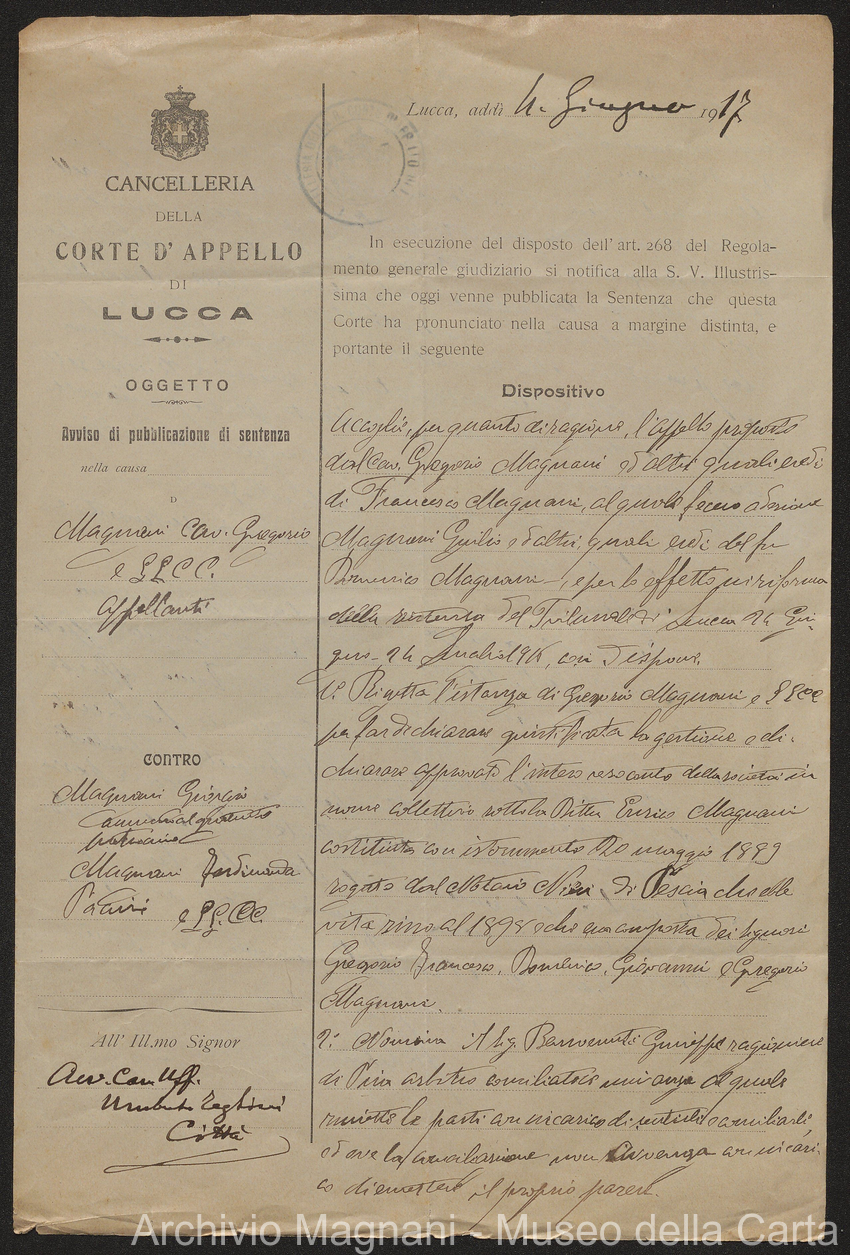 CANCELLERIA
DELLA
CORTE D'APPELLO
DI
LUCCA
OGGETTO
Avviso di pubblicazione di sentenza
nella causa
D
Magnani Cav. Gregorio
e LLCC.
appellanti
CONTRO
Magnani Giorgio
Magnani Ferdinanda
e LL.CC.
All' Ill.mo Signor
Avv. Comm. Uff.
Umberto
Città
Lucca, addì 4. Giugno 1917
In esecuzione del disposto dell'art. 268 del Regola-
mento generale giudiziario si notifica alla S. V. Illustris-
sima che oggi venne pubblicata la Sentenza che questa
Corte ha pronunciato nella causa a margine distinta, e
portante il seguente
Dispositivo
Accoglie, per quanto di ragione, l'appello proposto
dal Cav. Gregorio Magnani ed altri quali eredi
di Francesco Magnani, al quale fecero adesione
Magnani Giulio ed altri, quali eredi del fu
Domenico Magnani, e per lo effetto in riforma
della sentenza del Tribunale di Lucca 24 Giu-
gno 24 Luglio, così dispone.
1° Rigetta l'istanza di Gregorio Magnani e LLCC
per far dichiarare giustificata la gestione e di-
chiarare approvato l'intero resoconto della società in
nome collettivo sotto la Ditta Enrico Magnani
costituita con istrumento 20 maggio 1889
rogato dal Notaio Nieri di Pescia che ebbe
vita sino al 1898 e che era composta dei signori
Gregorio Francesco, Domenico, Giovanni e Gregorio
Magnani.
2° Nomina il Sig. Benvenuti Giuseppe ragioniere
di Pisa arbitro conciliatore innanzi al quale
rimette le parti con incarico di sentirle e conciliarle,
ed ove la conciliazione non avvenga con incari-
co di emettere il proprio parere.
Archivio Magnani - Museo della Carta